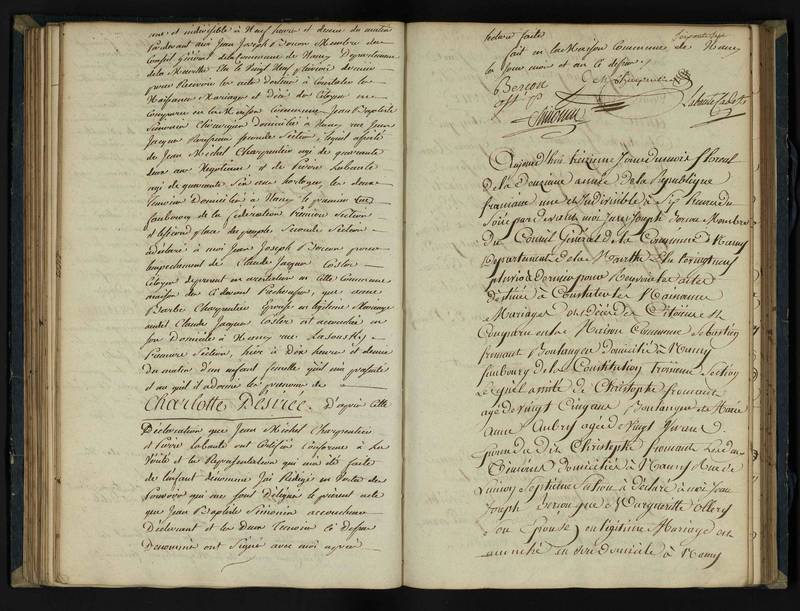 une et indivisible à Neuf heures et demie du matin
Pardevant moi Jean Joseph Berson Membre du
Conseil Général de la Commune de Nancy Departement
de la Meurthe Elu le Vingt Neuf pluviose dernier
pour Recevoir les acte destiné à Constater les
Naissance Mariages et Décé des Citoyens est
Comparu en la Maison Commune Jean Baptiste
Simonin Chirurgien domicilié à Nancy rue Jean
Jacque Rousseau seconde Section, lequel assisté
de Jean Michel Charpentier agé de quarante
deux ans Negotiant et de Pierre Labaute
agé de quarante six ans horloger, les deux
temoins Domicilies à Nancy le premier
faubourg de la Fédération Premiere Section
et le second place du peuple Seconde Section
a déclaré à moi Jean Joseph Berson pour
l'empechement de Claude Jacque Coster
Citoyen en arestation en cette Commune
maison des ci devant, que anne
Barbe Charpentier Epouse en légitime Mariage
audit Claude Jacque Coster est accouchée en
son Domicile à Nancy rue
Premiere Section, hier à Dix heures et demie
du matin d'un enfant femelle qu'il m'a presenté
et au quel il a donné les prenoms de
Charlotte Désirée. D'après cette
Declaration que Jean Michel Charpentier
et Pierre Labaute ont Certifiée Conforme à la
Vérité et la Représentation qui m'a été faite
de l'enfant denommé J'ai Rédigé en Vertu des
Pouvoirs qui me sont délégués le présent acte
que Jean Baptiste Simonin accoucheur
Declarant et les Deux Temoins ci dessus
Denommés ont Signé avec moi après
lecture faite
Soixante Sept
fait en la Maison Commune de Nancy
les Jour mois et an ci dessus./.
Berson
off. p.
Charpentier
Simonin
Labaute
Aujourd'hui treizieme Jour du mois floreal
De la Deuxieme année de la Republique
francaise une et Indivisible à Six Heures du
Soir pardevant moi Jean Joseph Berson Membre
du Conseil Général de la Commune de Nancy
Departement de la Meurthe Elu le vingt neuf
pluviose dernier pour Recevoir les actes
destiné à Constater les Naissance
Mariages et décé des Citoiens est
Comparu en la Maison Commune Sebastien
fromant Boulanger domicilié à Nancy
faubourg de la Constitution troisieme Section
Lequel assisté de Christophe fromant
agé de vingt Cinq ans Boulanger de Marie
anne Aubry agée de vingt
femme du Dit Christophe fromant Les deux
Témoins domiciliés à Nancy Rue de
L'union Septieme Section a déclaré à moi Jean
Joseph Berson que Margueritte Ollery
son Epouse en légitime Mariage est
accouchée en son domicile à Nancy